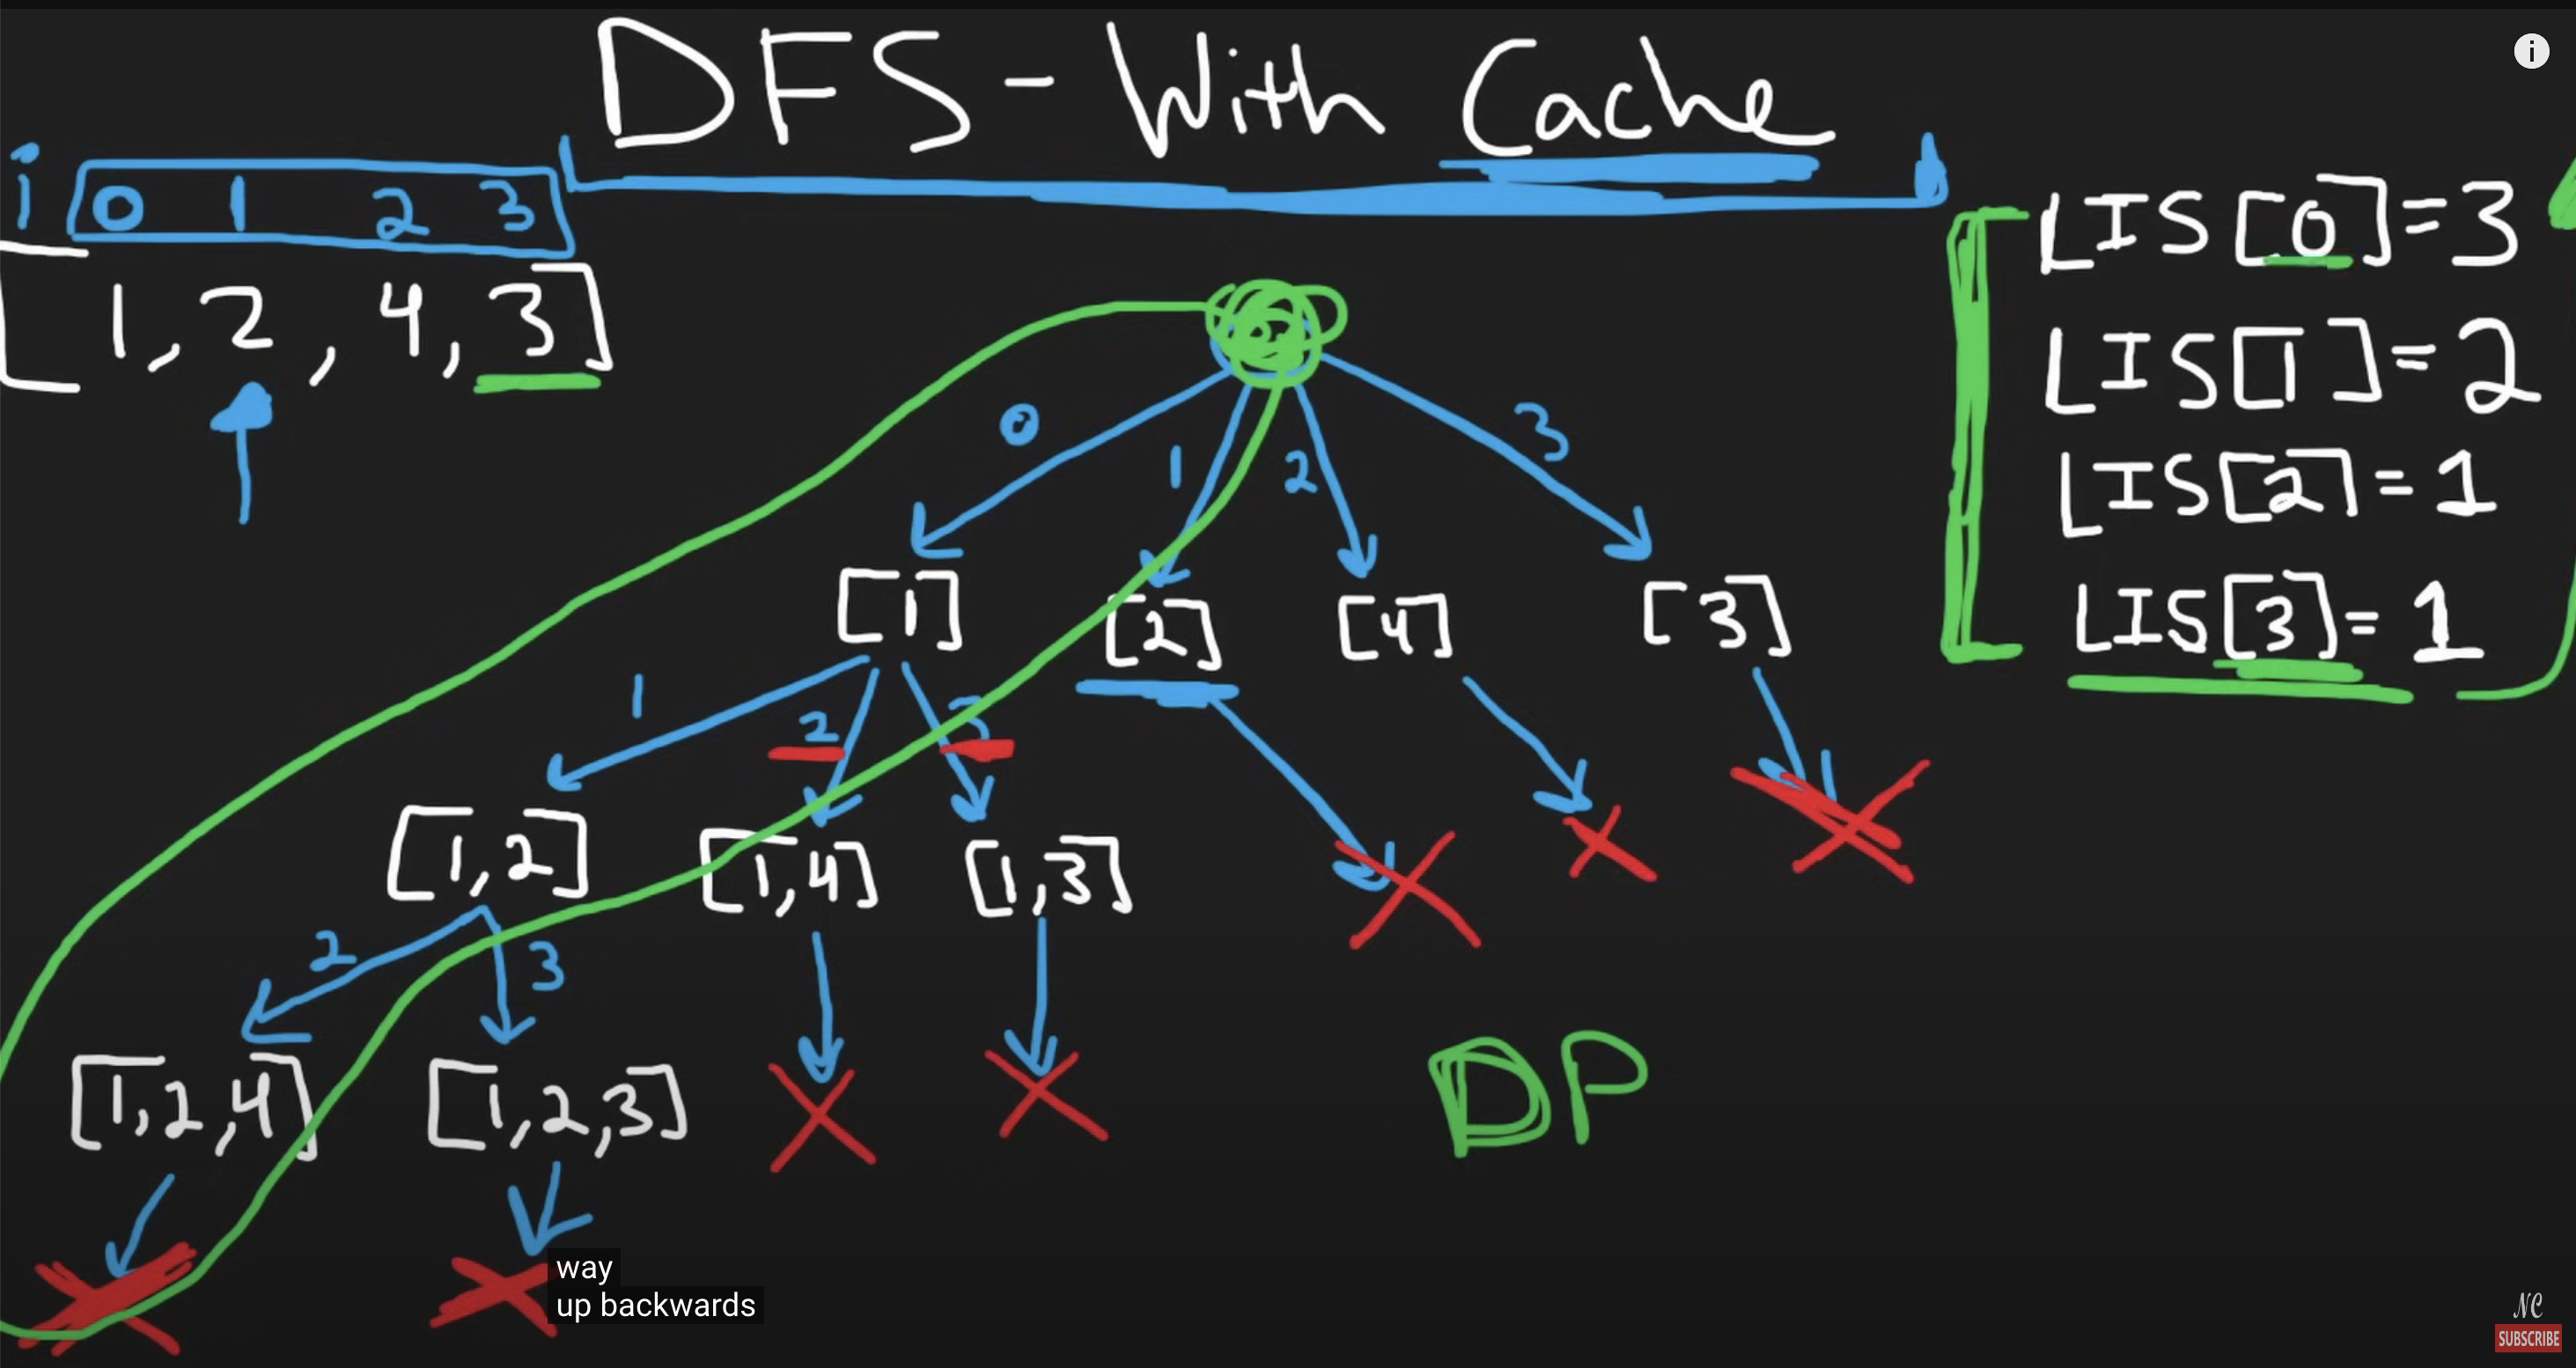 DFS - With Cache
i 0 1 2 3
[ 1, 2, 4, 3]
LIS[0]=3
LIS[1]=2
LIS[2]=1
LIS[3]=1
0 1 2 3
[1] [2] [4] [3]
1 2 3
[1,2] [1,4] [1,3]
2 3
[1,2,4] [1,2,3]
DP
way
up backwards
NC
SUBSCRIBE